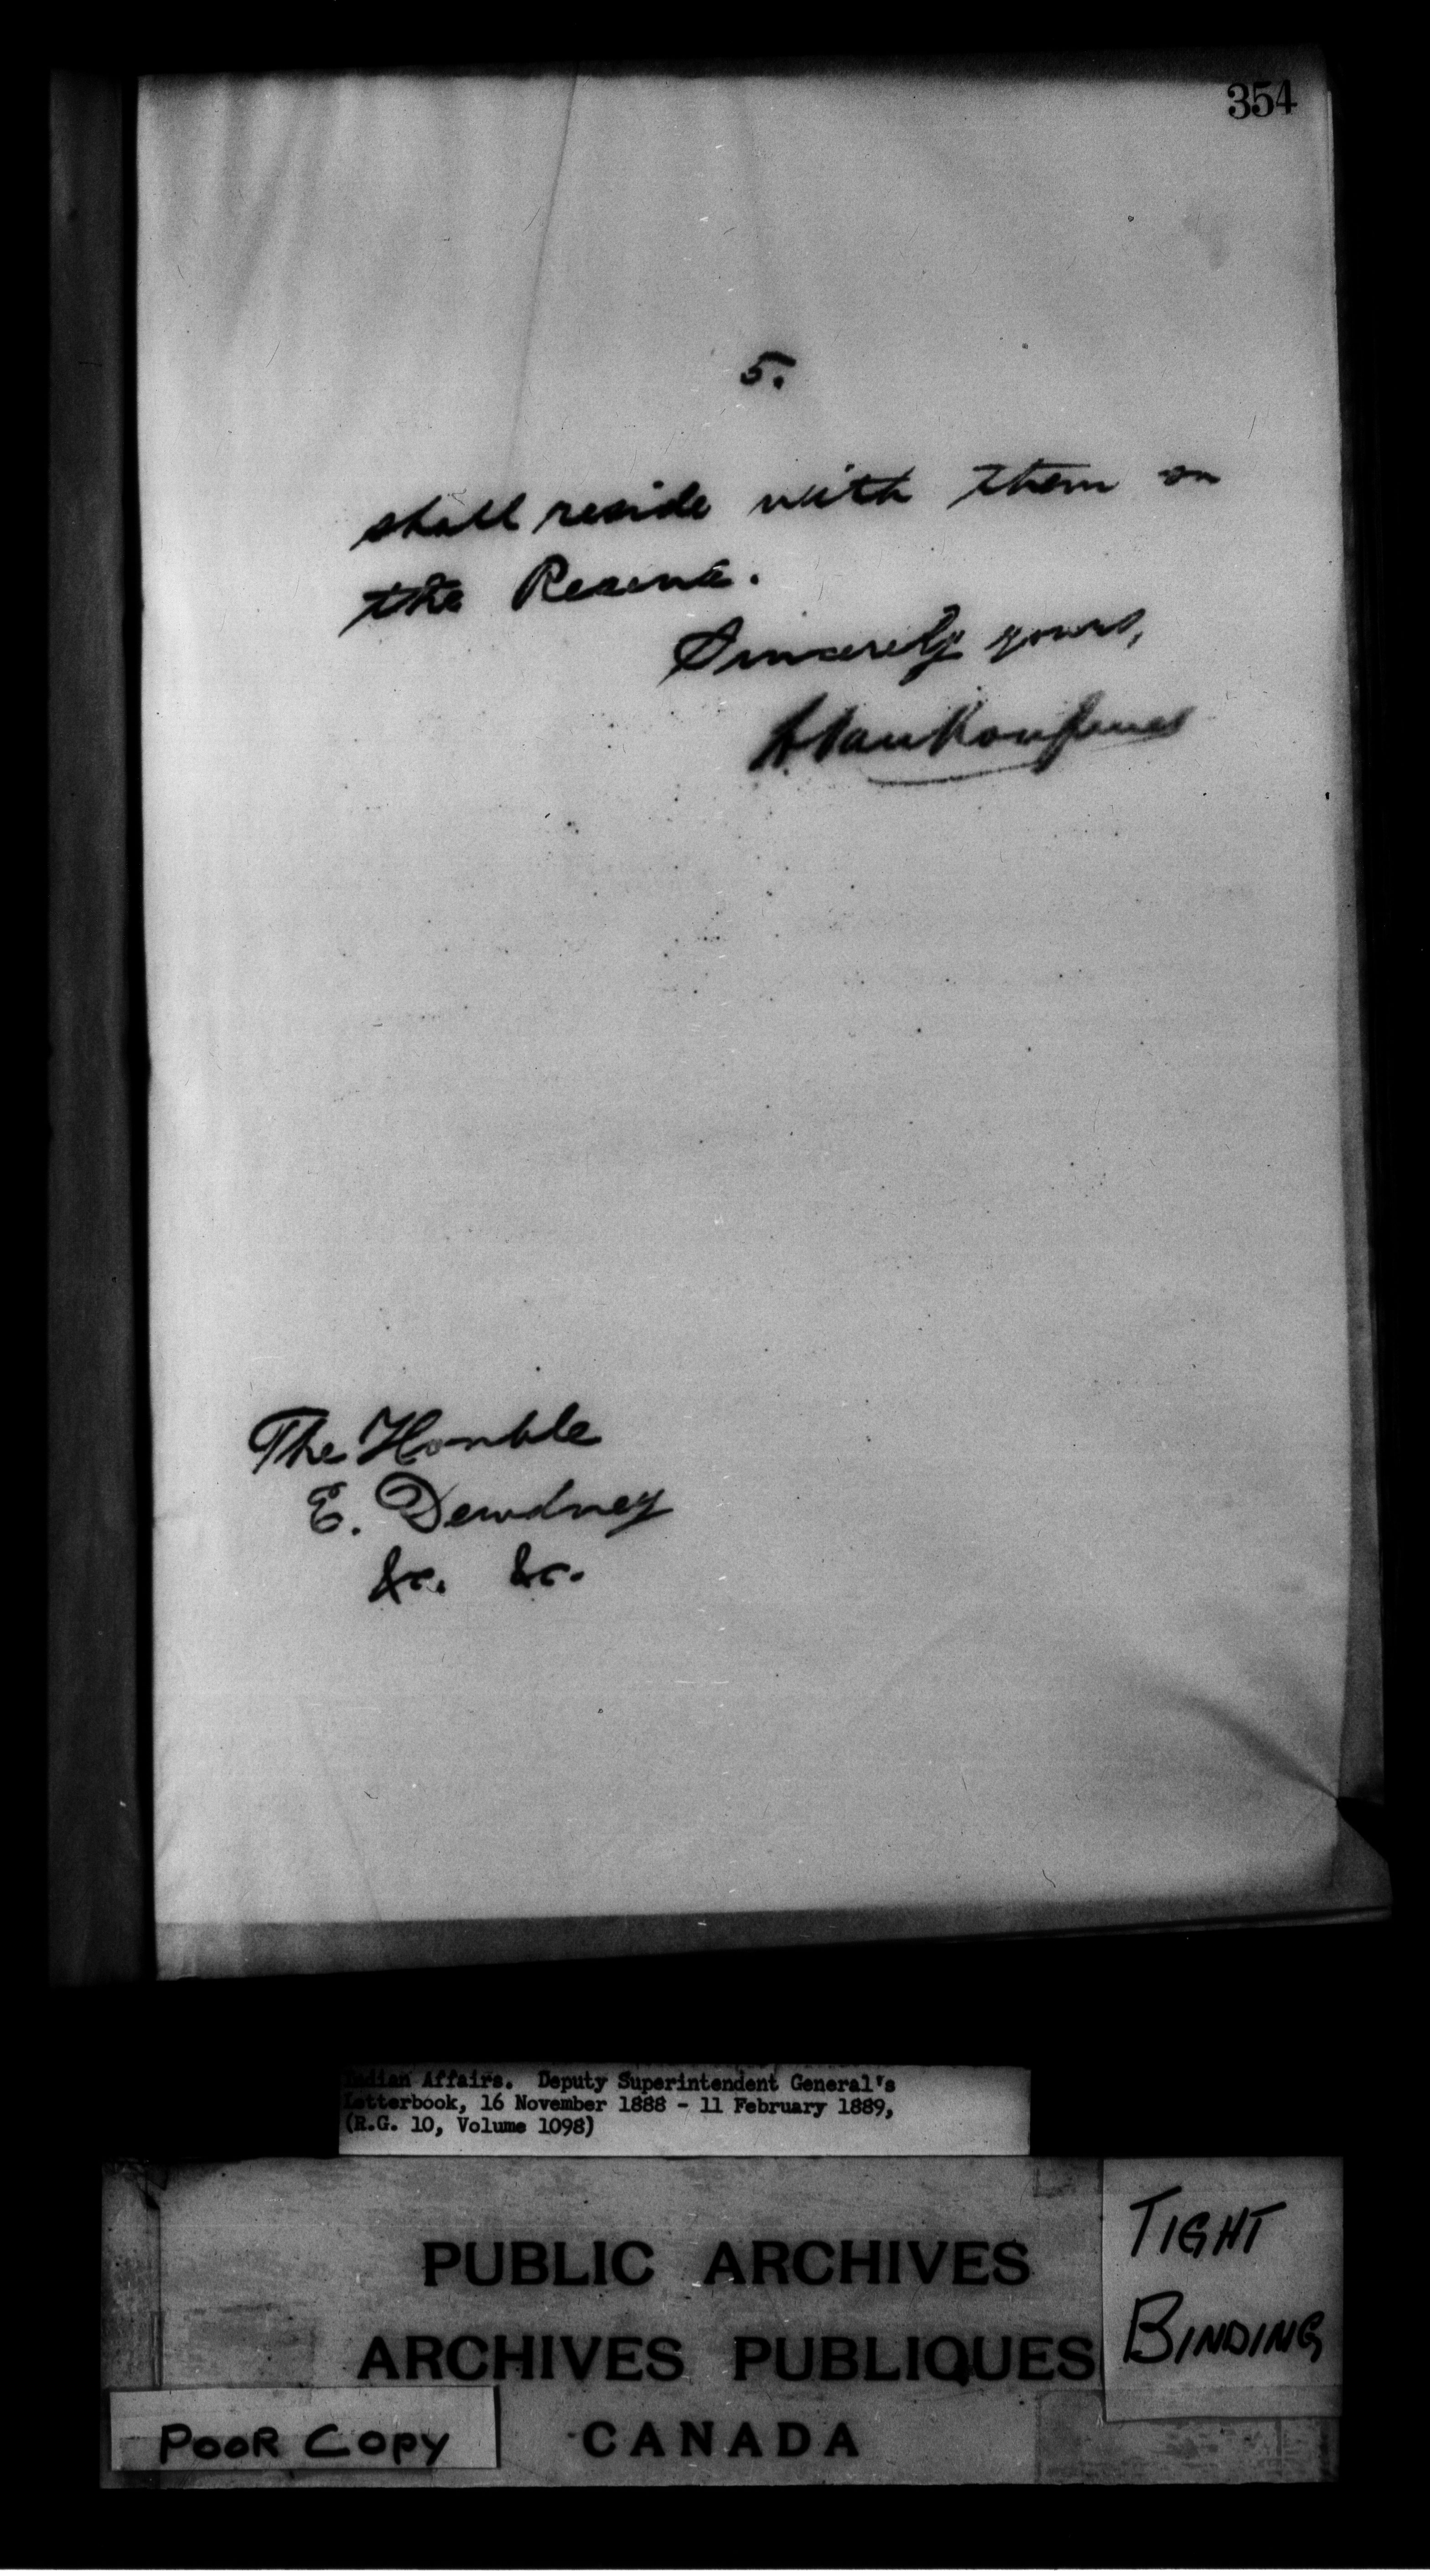 354
5.
shall reside with them on
the Reserve.
Sincerely yours,
L. VanKoughnet
The Honble
E. Dewdney
&c. &c.
Indian Affairs. Deputy Superintendent General's
Letterbook, 16 November 1888 - 11 February 1889,
(R.G. 10, Volume 1098)
PUBLIC ARCHIVES
ARCHIVES PUBLIQUES
CANADA
TIGHT
BINDING
POOR COPY